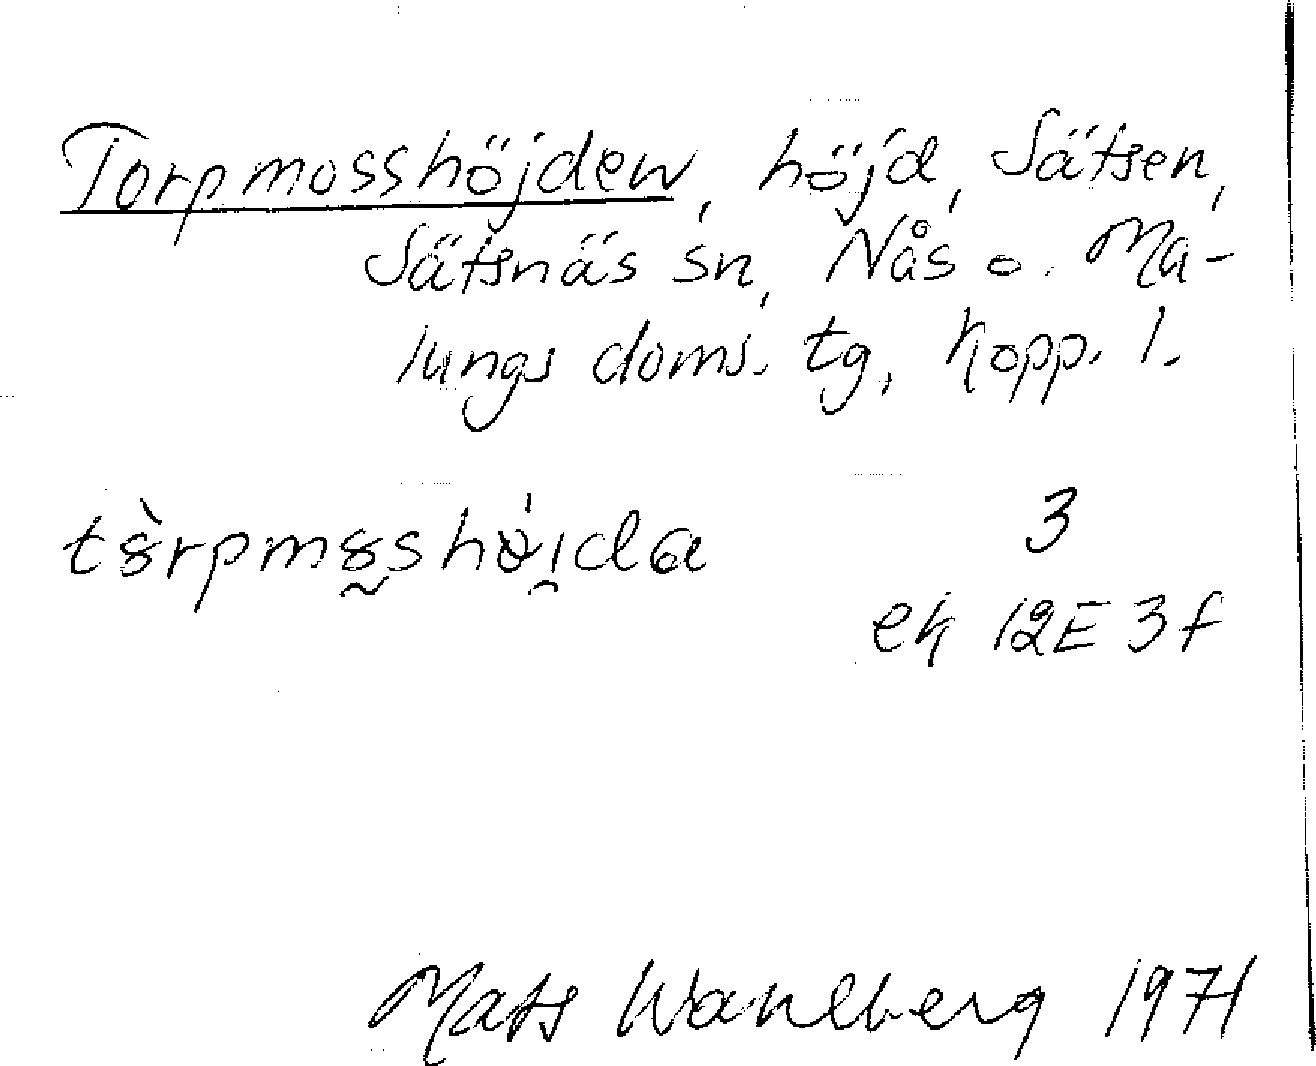 Torpmosshöjden, höjd, Sätsen,
Sätsnäs sn, Nås o. Ma-
lungs doms. tg, Kopp. l.
3
ek 12E 3f
Mats Wahlberg 1971